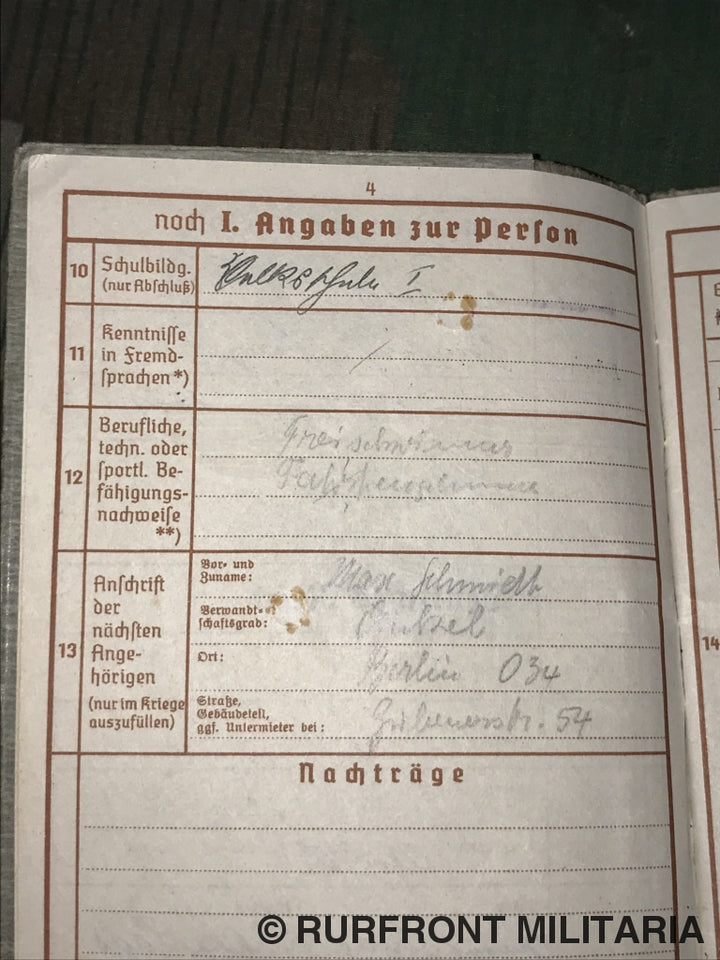 4
noch I. Angaben zur Person
10 Schulbildg. (nur Abschluß)
Volksschule I
11 Kenntnisse in Fremdsprachen *)
12 Berufliche, techn. oder sportl. Befähigungsnachweise **)
Freischwimmer
13 Anschrift der nächsten Angehörigen (nur im Kriege auszufüllen)
Vor- und Zuname: Max Schmidt
Verwandtschaftsgrad:
Ort: Berlin O34
Straße, Gebäudeteil, ggf. Untermieter bei: Gubenerstr. 54
Nachträge
14
© RURFRONT MILITARIA